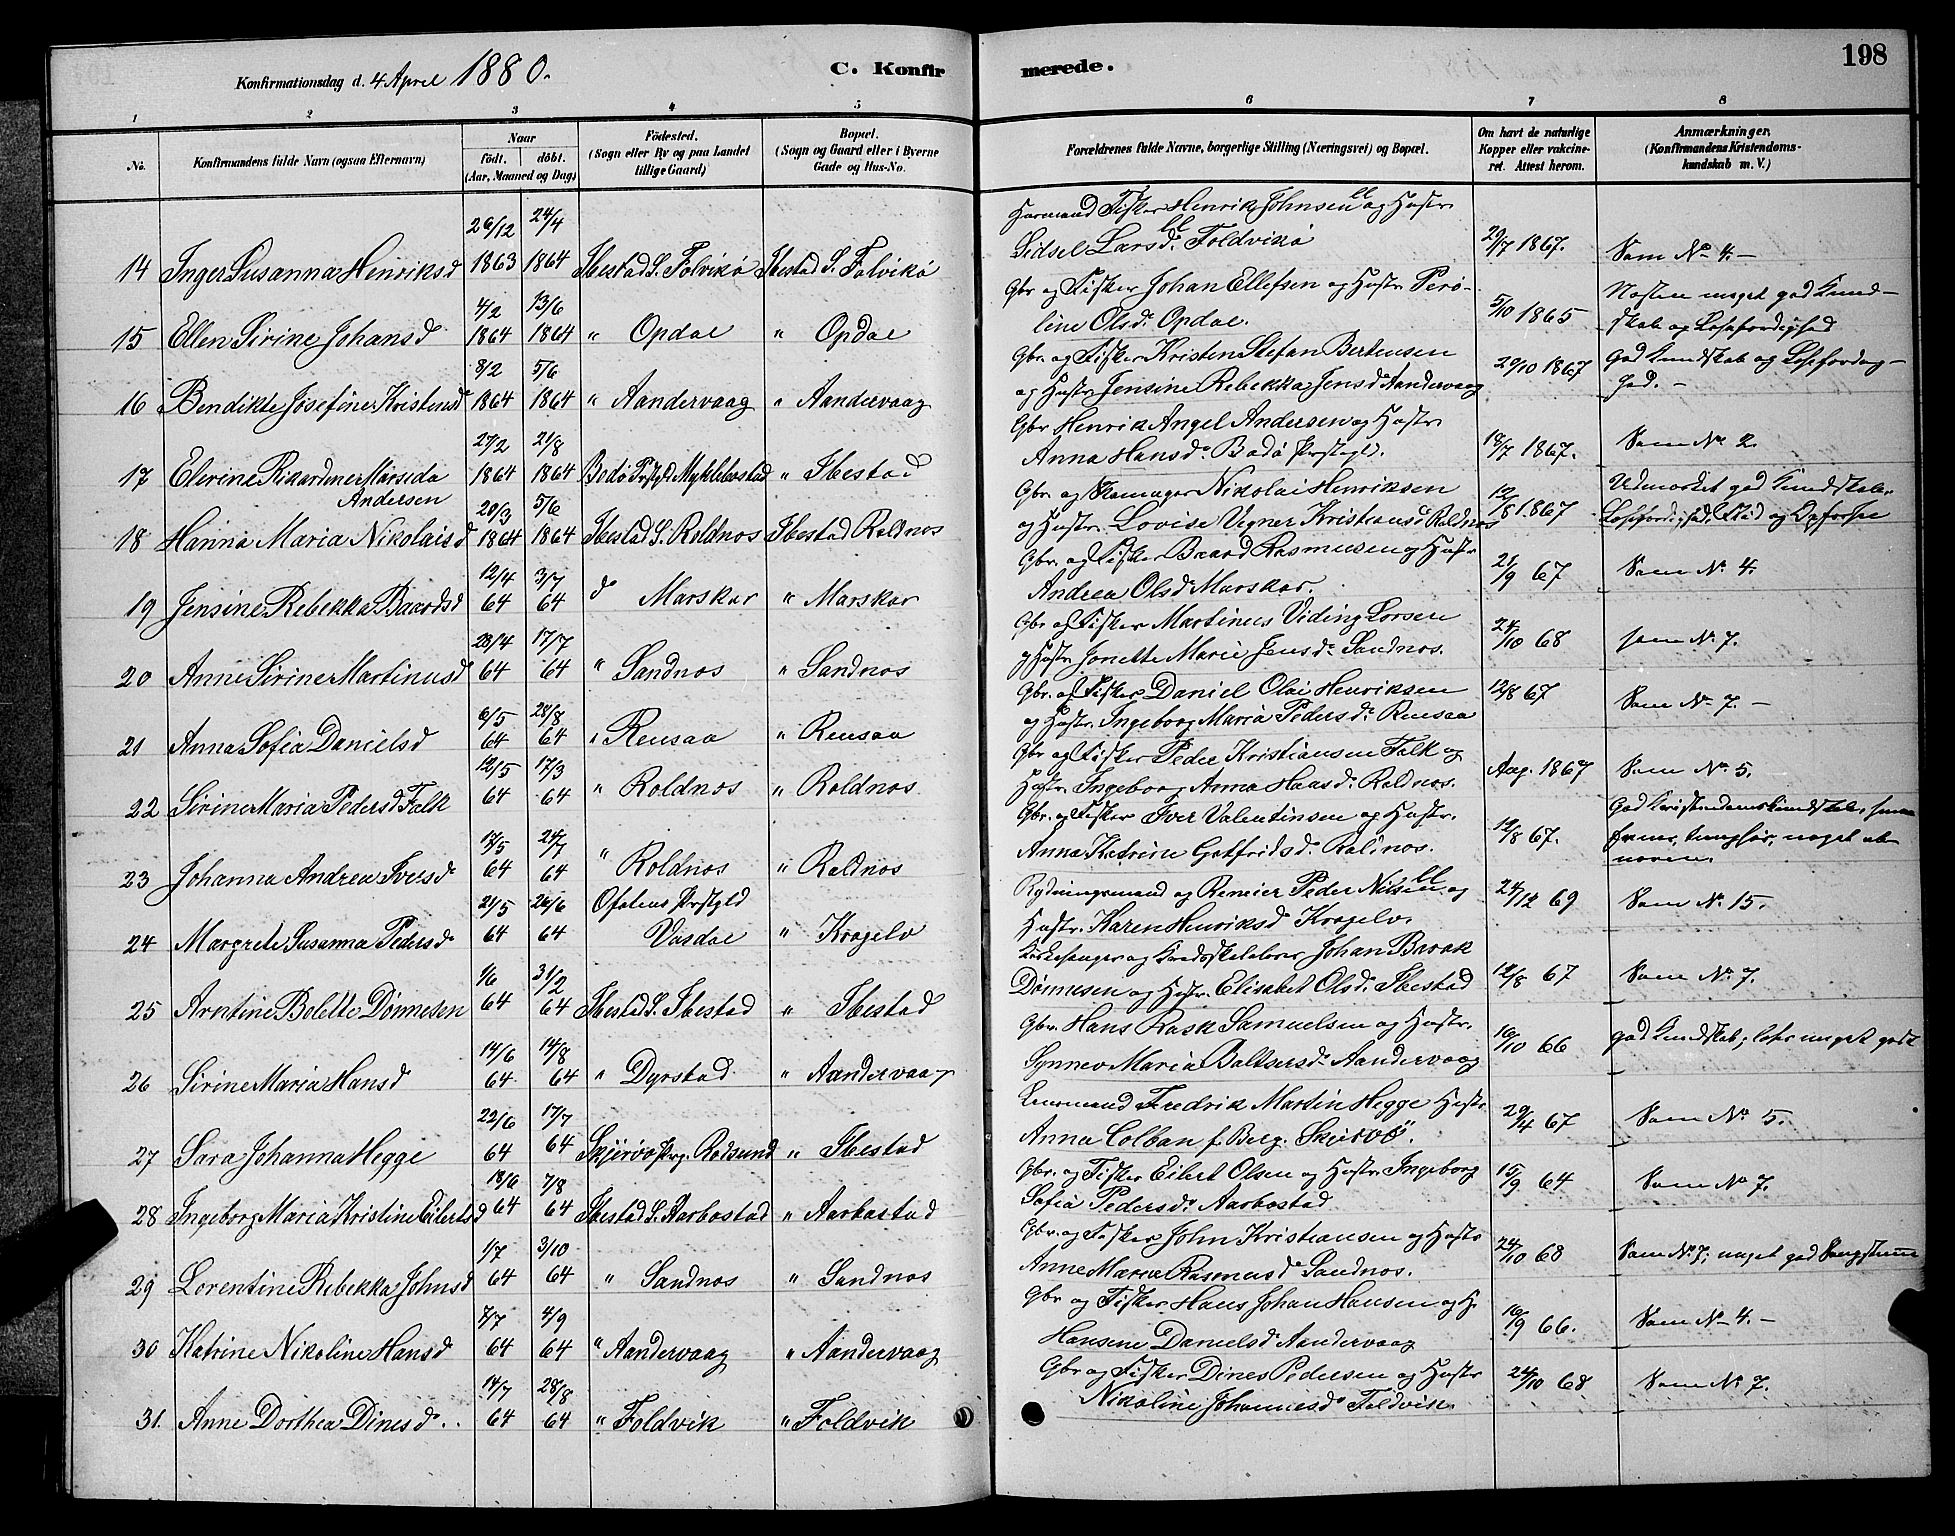 198
Konfirmationsdag d. 4 April 1880.
C. Konfirmerede.
1 2 3 4 5 6 7 8
No. Konfirmandens fulde Navn (ogsaa Efternavn) Naar født. døbt. (Aar, Maaned og Dag) Fødested. (Sogn eller By og paa Landet tillige Gaard) Bopæl. (Sogn og Gaard eller i Byerne Gade og Hus-No. Forældrenes fulde Navne, borgerlige Stilling (Næringsvei) og Bopæl. Om havt de naturlige Kopper eller vakcineret. Attest herom. Anmærkninger, (Konfirmandens Kristendomskundskab m. V.)
14 Inger Susanna Henriksd 26/12 1863 24/4 1864 Ibestad S. Folvikø Ibestad S. Folvikø
Husmand Fisker Henrik Johnsen og Hustr
Sidsel Larsd. Foldvikø 29/7 1867. Som No 4. –
15 Ellen Sirine Johansd 4/2 1864 13/6 1864 " Opdal " Opdal
Gbr og Fisker Johan Ellefsen og Hustr Perø-
line Olsd. Opdal. 5/10 1865 Næsten meget god Kund-
skab og Læsefærdighed
16 Bendikte Josefine Kristensd 8/2 1864 5/6 1864 " Aandervaag " Aandervaag
Gbr. og Fisker Kristen Stefan Bertensen
og Hustr. Jensine Rebekka Jensd Aandervaag 29/10 1867 God Kundskab og Læsefærdig-
hed. –
17 Elerine Rikardine Marsida Andersen 27/2 1864 21/8 1864 Bodø Prstgd Myklebostad " Ibestad
Gbr Henrik Angel Andersen og Hustr
Anna Hansd. Bodø Prstgld. 18/7 1867. Som No 2.
18 Hanna Maria Nikolaisd 20/3 1864 5/6 1864 Ibestad S. Roldnos Ibestad Roldnos
Gbr. og Skomager Nikolai Henriksen
og Hustr. Lovise Vegner Kristiansd Roldnos 12/8 1867 Udmærket god Kundskab,
Læsefærdighed, Flid og Opførsel
19 Jensine Rebekka Baardsd 12/4 64 3/7 64 do Marskar " Marskar
Gbr. og Fisker Baard Rasmussen og Hustr
Andrea Olsd Marskar. 21/9 67 Som No 4.
20 Anne Sirine Martinusd 23/4 64 17/7 64 " Sandnos " Sandnos
Gbr og Fisker Martinus Viding Larsen
og Hustr Jonette Marie Jensd. Sandnos. 24/10 68 som No 7.
21 Anna Sofia Danielsd 6/5 64 28/8 64 " Rensaa " Rensaa
Gbr. og Fisker Daniel Olai Henriksen
og Hustr. Ingeborg Maria Pedersd. Rensaa 12/8 67 Som No 7. –
22 Sirine Maria Pedersd Falk 12/5 64 17/3 64 " Roldnos " Roldnos
Gbr og Fisker Peder Kristiansen Falk og
Hustr. Ingeborg Anna Hansd. Roldnos. Aug. 1867 Som No 5.
23 Johanna Andrea Iversd 17/5 64 24/7 64 " Roldnos " Roldnos
Gbr. og Fisker Iver Valentinsen og Hustr.
Anna Katrine Gotfridsd. Roldnos. 12/8 67. God Kristendomskundskab,
tunghør, noget
24 Margrete Susanna Pedersd 21/5 64 26/6 64 Ofotens Prstgld Vasdal " Krogelv
Rydningsmand og Peder Nilsen og
Hustr. Karen Henriksd Krogelv. 24/12 69 Som No 15.
25 Arntine Bolette Dønnesen 1/6 64 31/2 64 Ibestad S. Ibestad " Ibestad
Kirkesanger og Kredsskolelærer Johan Barok
Dønnesen og Hustr. Elisabet Olsd. Ibestad 12/8 67 Som No 7.
26 Sirine Maria Hansd 14/6 64 14/8 64 " Dyrstad " Aandervaag
Gbr. Hans Rask Samuelsen og Hustr.
Synnev Maria Baltsersd. Aandervaag 16/10 66 God Kundskab, læser meget godt
27 Sara Johanna Hegge 22/6 64 17/7 64 Skjervø Prg. Rodsund " Ibestad
Lensmand Fredrik Martin Hegge Hustr
Anna Colban f. Berg. Skjervø. 29/4 67 Som No 5.
28 Ingeborg Maria Kristine Eilertsd 18/6 64 7/8 64 Ibestad S. Aarbostad " Aarbostad
Gbr. og Fisker Eilert Olsen og Hustr Ingeborg
Sofia Pedersd. Aarbostad 15/9 64 Som No 7.
29 Lorentine Rebekka Johnsd 1/7 64 3/10 64 " Sandnos " Sandnos
Gbr. og Fisker John Kristiansen og Hustr
Anne Maria Rasmusd Sandnos. 24/10 68 Som No 7, meget god Sangstemme
30 Katrine Nikoline Hansd 7/7 64 4/9 64 " Aandervaag " Aandervaag
Gbr og Fisker Hans Johan Hansen og H.
Hansine Danielsd Aandervaag 16/9 66. Som No 4. –
31. Anne Dorthea Dinesd. 14/7 64 28/8 64 " Foldvik " Foldvik
Gbr og Fisker Dines Pedersen og Hustr
Nikoline Johannesd Foldvik. 24/10 68 Som No 7.